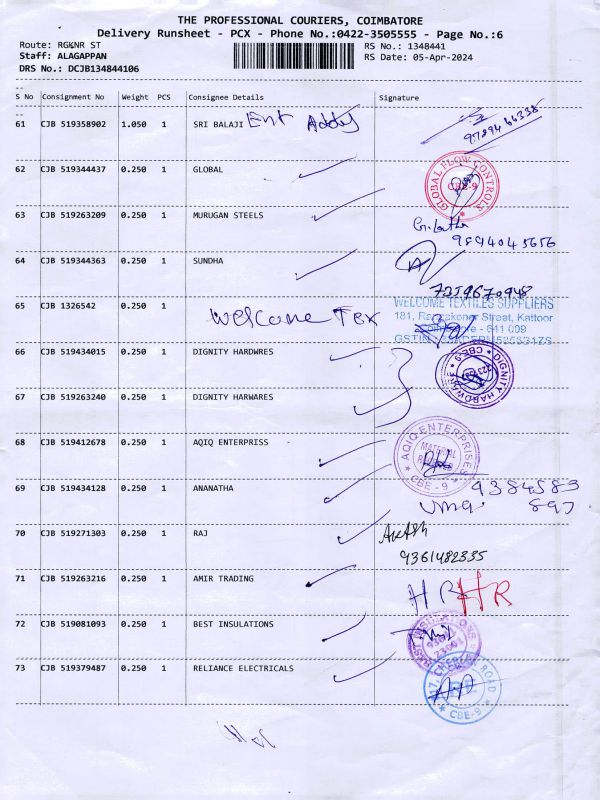 THE PROFESSIONAL COURIERS, COIMBATORE
Delivery Runsheet - PCX - Phone No.:0422-3505555 - Page No.:6
Route: RGKNR ST
RS No.: 1348441
Staff: ALAGAPPAN
RS Date: 05-Apr-2024
DRS No.: DCJB134844106
S No Consignment No Weight PCS Consignee Details Signature
61 CJB 519358902 1.050 1 SRI BALAJI Ent Addy
62 CJB 519344437 0.250 1 GLOBAL
GLOBAL FLOW CONTROLS CBE-9
63 CJB 519263209 0.250 1 MURUGAN STEELS
9894045656
64 CJB 519344363 0.250 1 SUNDHA
7359670948
65 CJB 1326542 0.250 1 Welcome Tex
WELCOME TEXTILES SUPPLIERS
Street, Kattoor
641 009
66 CJB 519434015 0.250 1 DIGNITY HARDWRES
DIGNITY CBE-9
67 CJB 519263240 0.250 1 DIGNITY HARWARES
68 CJB 519412678 0.250 1 AQIQ ENTERPRISS
AQIQ ENTERPRISES MATERIAL CBE - 9
69 CJB 519434128 0.250 1 ANANATHA
9384583
897
70 CJB 519271303 0.250 1 RAJ
9361482335
71 CJB 519263216 0.250 1 AMIR TRADING
HR HR
72 CJB 519081093 0.250 1 BEST INSULATIONS
73 CJB 519379487 0.250 1 RELIANCE ELECTRICALS
ROAD CBE-9